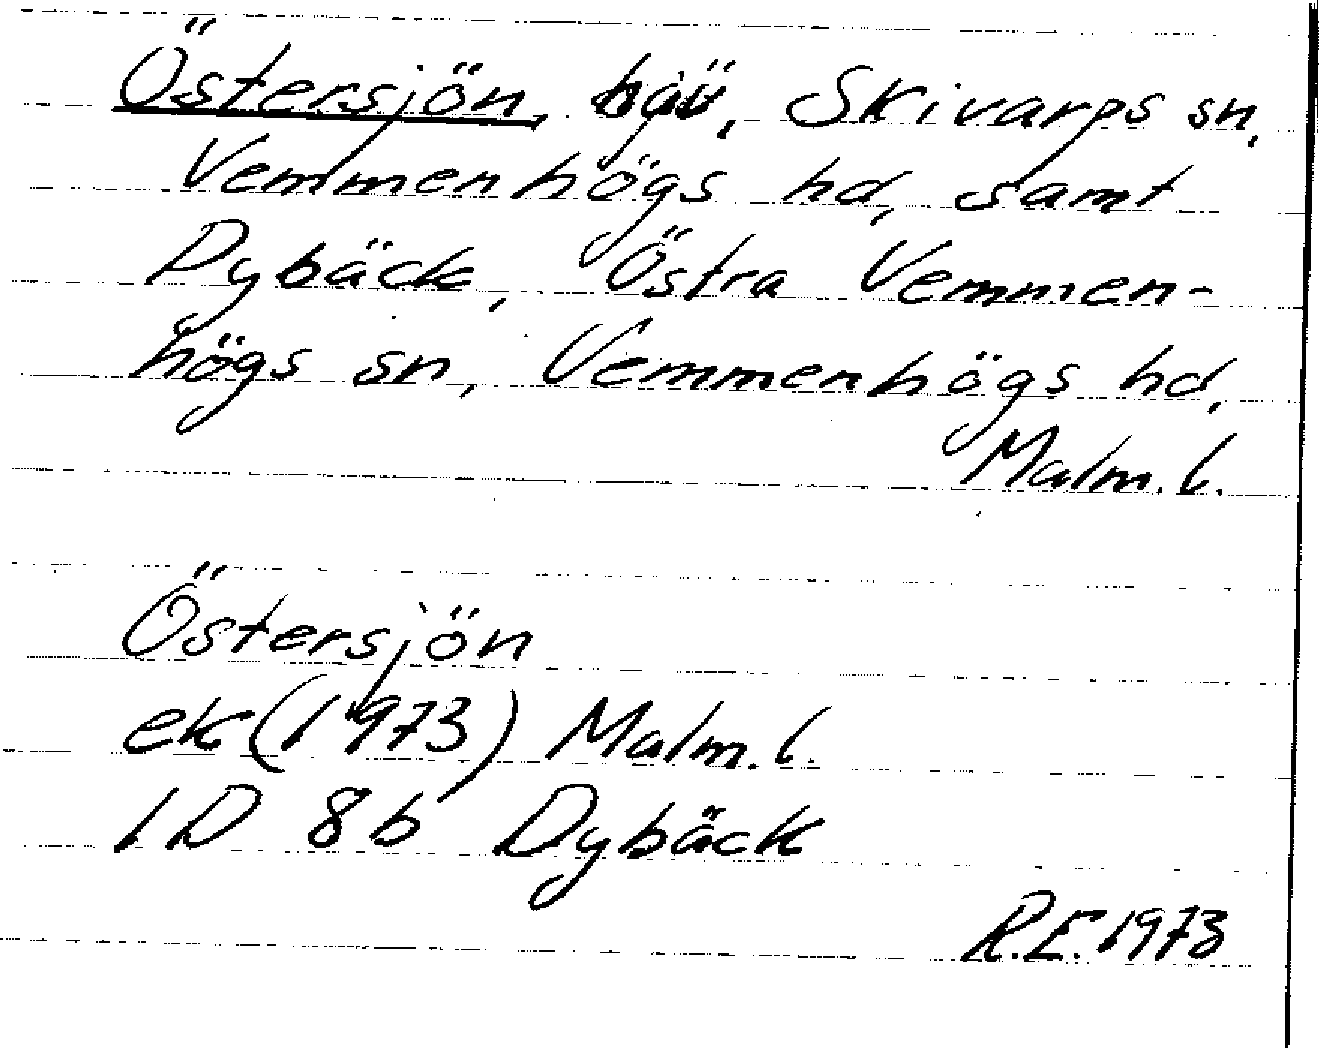 Östersjön, Skivarps sn,
Vemmenhögs hd, samt
Dybäck, Östra Vemmen-
högs sn, Vemmenhögs hd,
Malm. l.
Östersjön
ek (1973) Malm. l.
1D 8b Dybäck
R.E. 1973